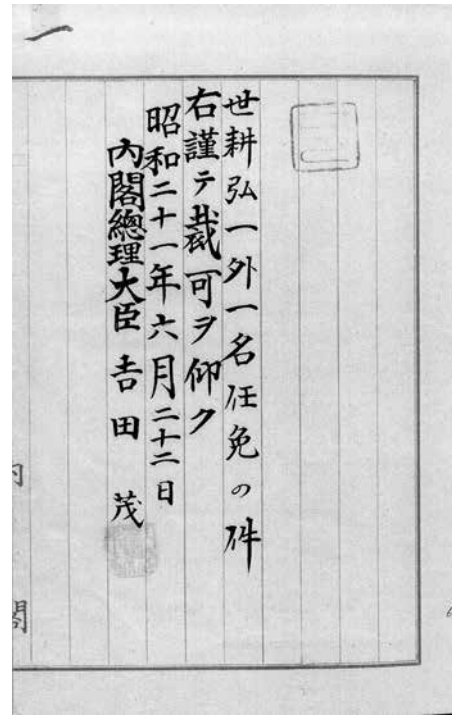 一
世耕弘一外一名任免の件
右謹テ裁可ヲ仰ク
昭和二十一年六月二十二日
內閣總理大臣吉田茂
內閣